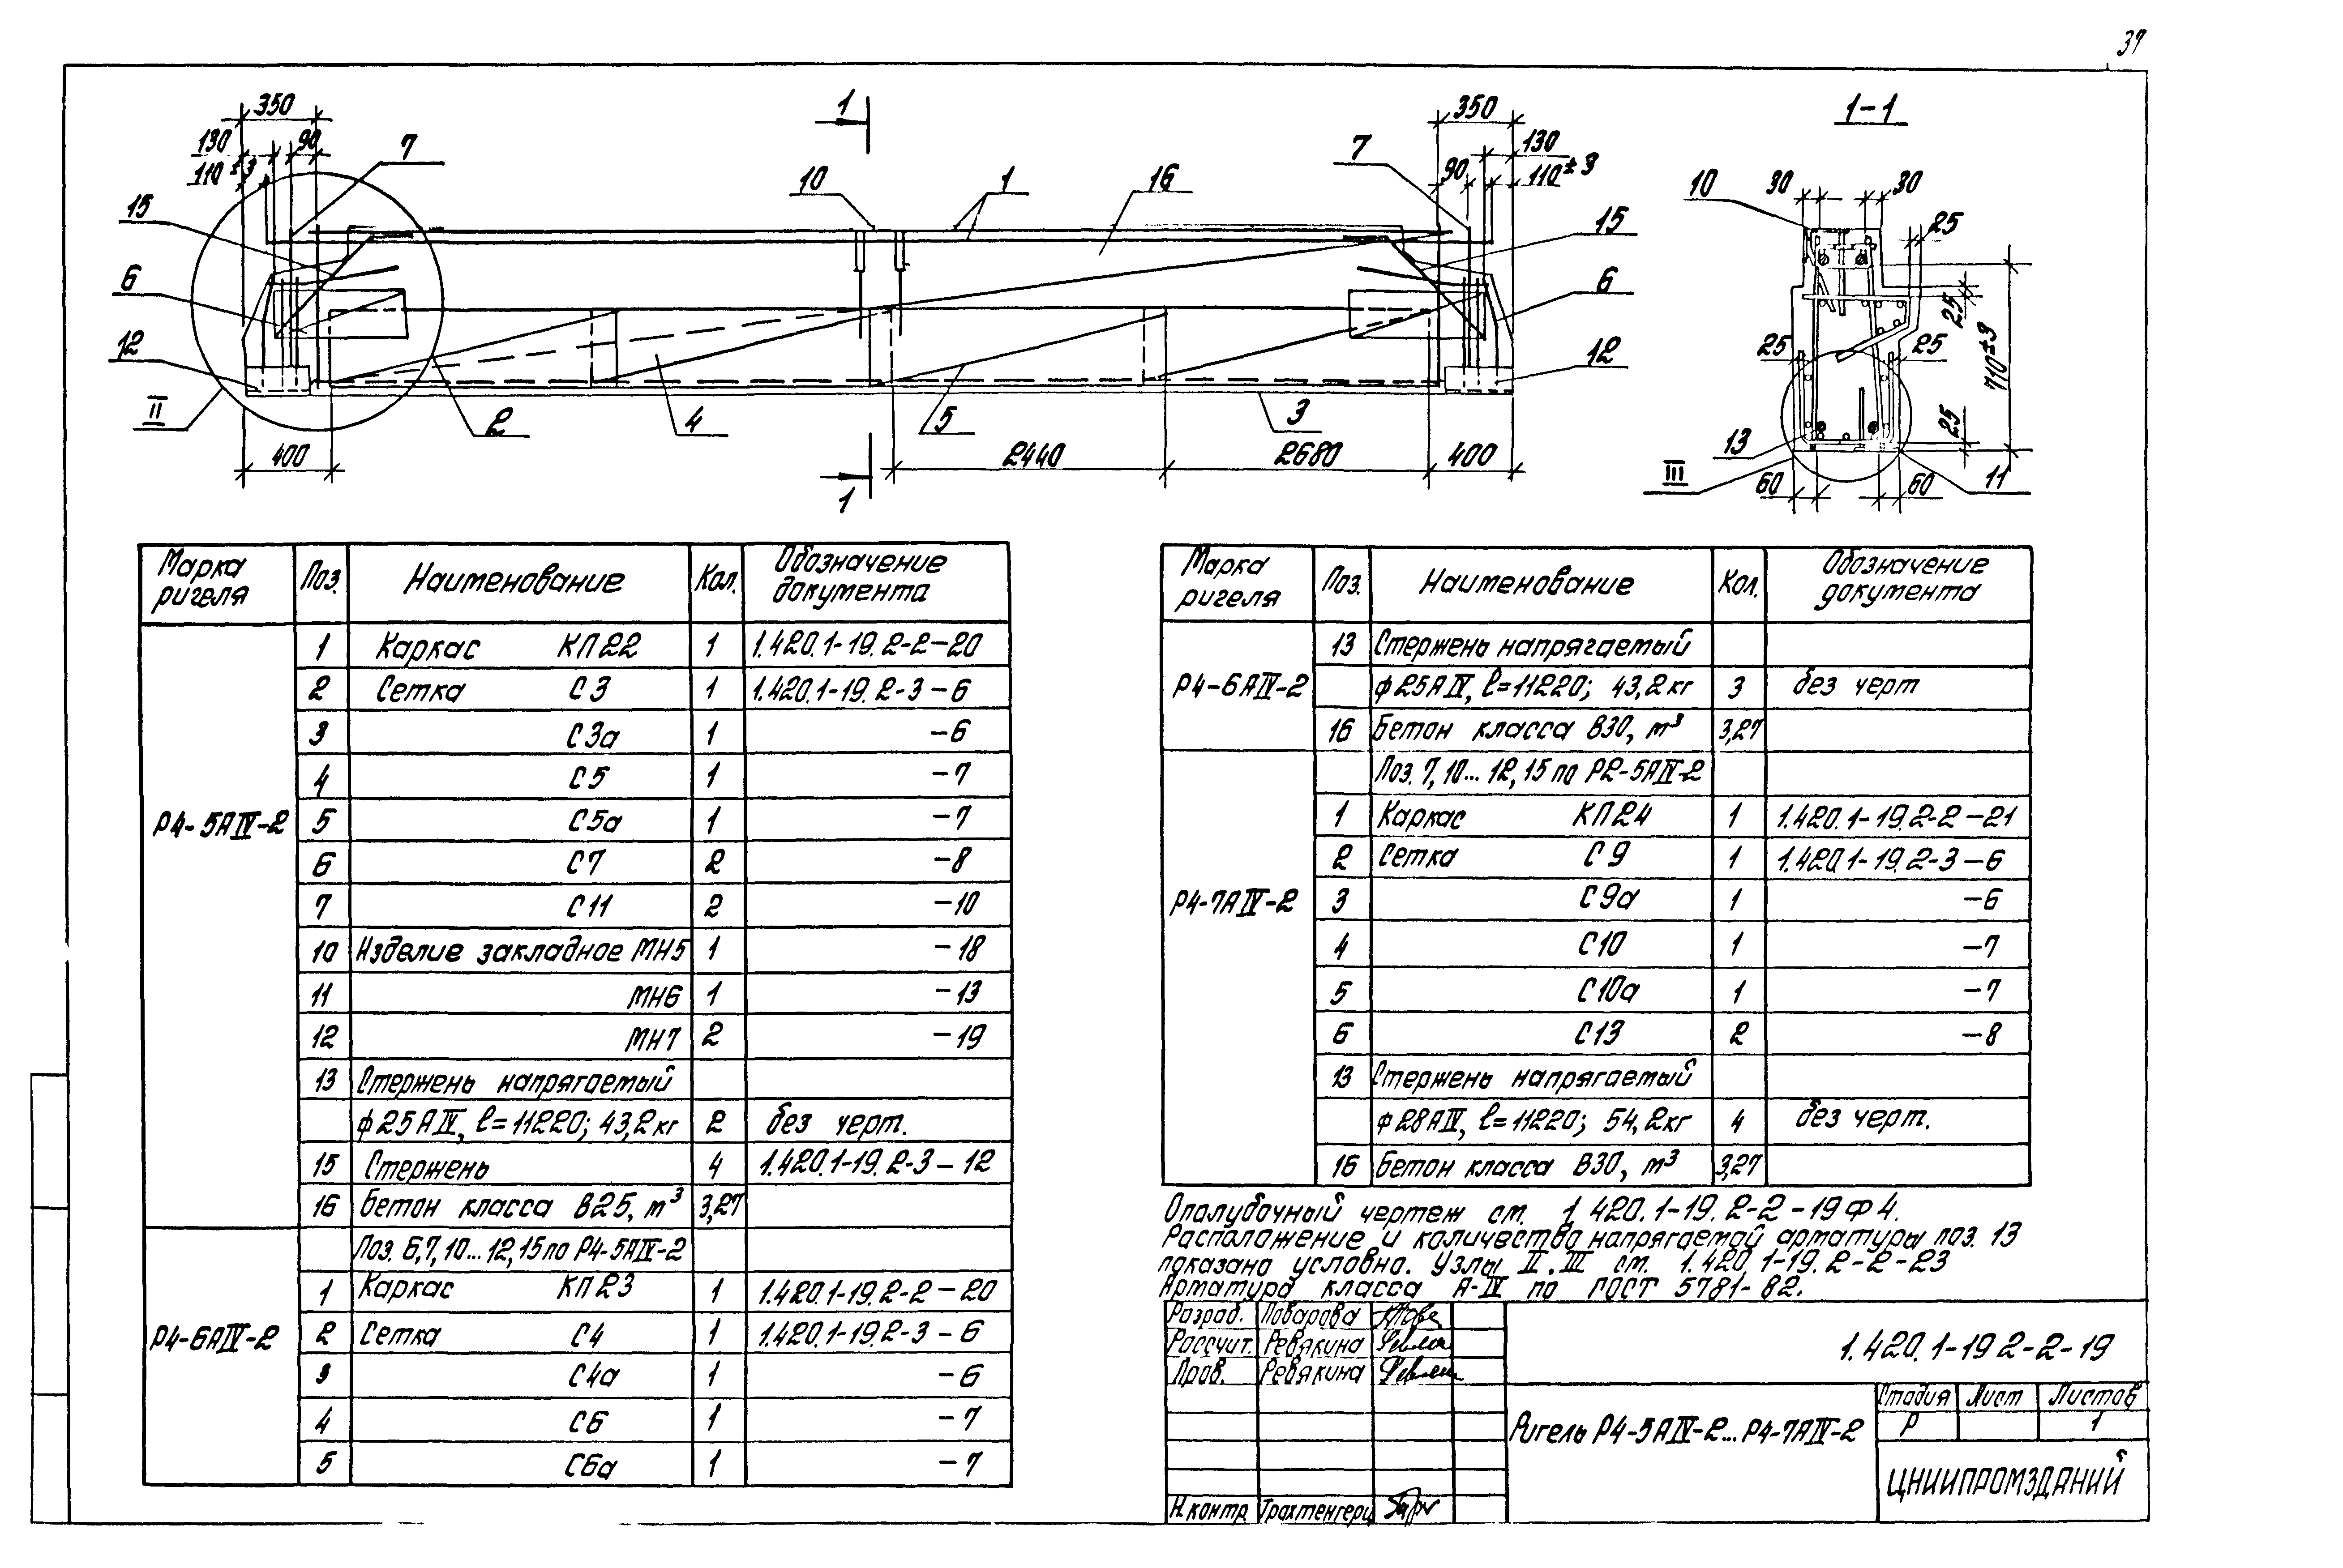 37
350
130
90
110±3
7
15
6
12
II
2
4
5
3
400
1
1
10
1
16
2440
2680
400
350
130
90
110±3
7
15
6
12
1-1
10
30
30
25
25
710±3
25
25
25
13
III
60
60
11
Марка ригеля Поз. Наименование Кол. Обозначение документа
Р4-5АIV-2
1 Каркас КП22 1 1.420.1-19.2-2-20
2 Сетка С3 1 1.420.1-19.2-3-6
3 С3а 1 -6
4 С5 1 -7
5 С5а 1 -7
6 С7 2 -8
7 С11 2 -10
10 Изделие закладное МН5 1 -18
11 МН6 1 -13
12 МН7 2 -19
13 Стержень напрягаемый
ф25АIV, ℓ=11220; 43,2кг 2 без черт.
15 Стержень 4 1.420.1-19.2-3-12
16 Бетон класса В25, м³ 3,27
Р4-6АIV-2
Поз. 6,7,10...12,15 по Р4-5АIV-2
1 Каркас КП23 1 1.420.1-19.2-2-20
2 Сетка С4 1 1.420.1-19.2-3-6
3 С4а 1 -6
4 С6 1 -7
5 С6а 1 -7
Марка ригеля Поз. Наименование Кол. Обозначение документа
Р4-6АIV-2
13 Стержень напрягаемый
ф25АIV, ℓ=11220; 43,2кг 3 без черт
16 Бетон класса В30, м³ 3,27
Р4-7АIV-2
Поз. 7,10...12,15 по Р2-5АIV-2
1 Каркас КП24 1 1.420.1-19.2-2-21
2 Сетка С9 1 1.420.1-19.2-3-6
3 С9а 1 -6
4 С10 1 -7
5 С10а 1 -7
6 С13 2 -8
13 Стержень напрягаемый
ф28АIV, ℓ=11220; 54,2кг 4 без черт.
16 Бетон класса В30, м³ 3,27
Опалубочный чертеж см. 1.420.1-19.2-2-19Ф4.
Расположение и количество напрягаемой арматуры поз. 13
показано условно. Узлы II, III см. 1.420.1-19.2-2-23
Арматура класса А-IV по ГОСТ 5781-82.
Разраб. Поварова
Рассчит. Ревякина
Пров. Ревякина
Н.контр Трахтенгерц
1.420.1-19 2-2-19
Ригель Р4-5АIV-2...Р4-7АIV-2
Стадия Лист Листов
Р 1
ЦНИИПРОМЗДАНИЙ